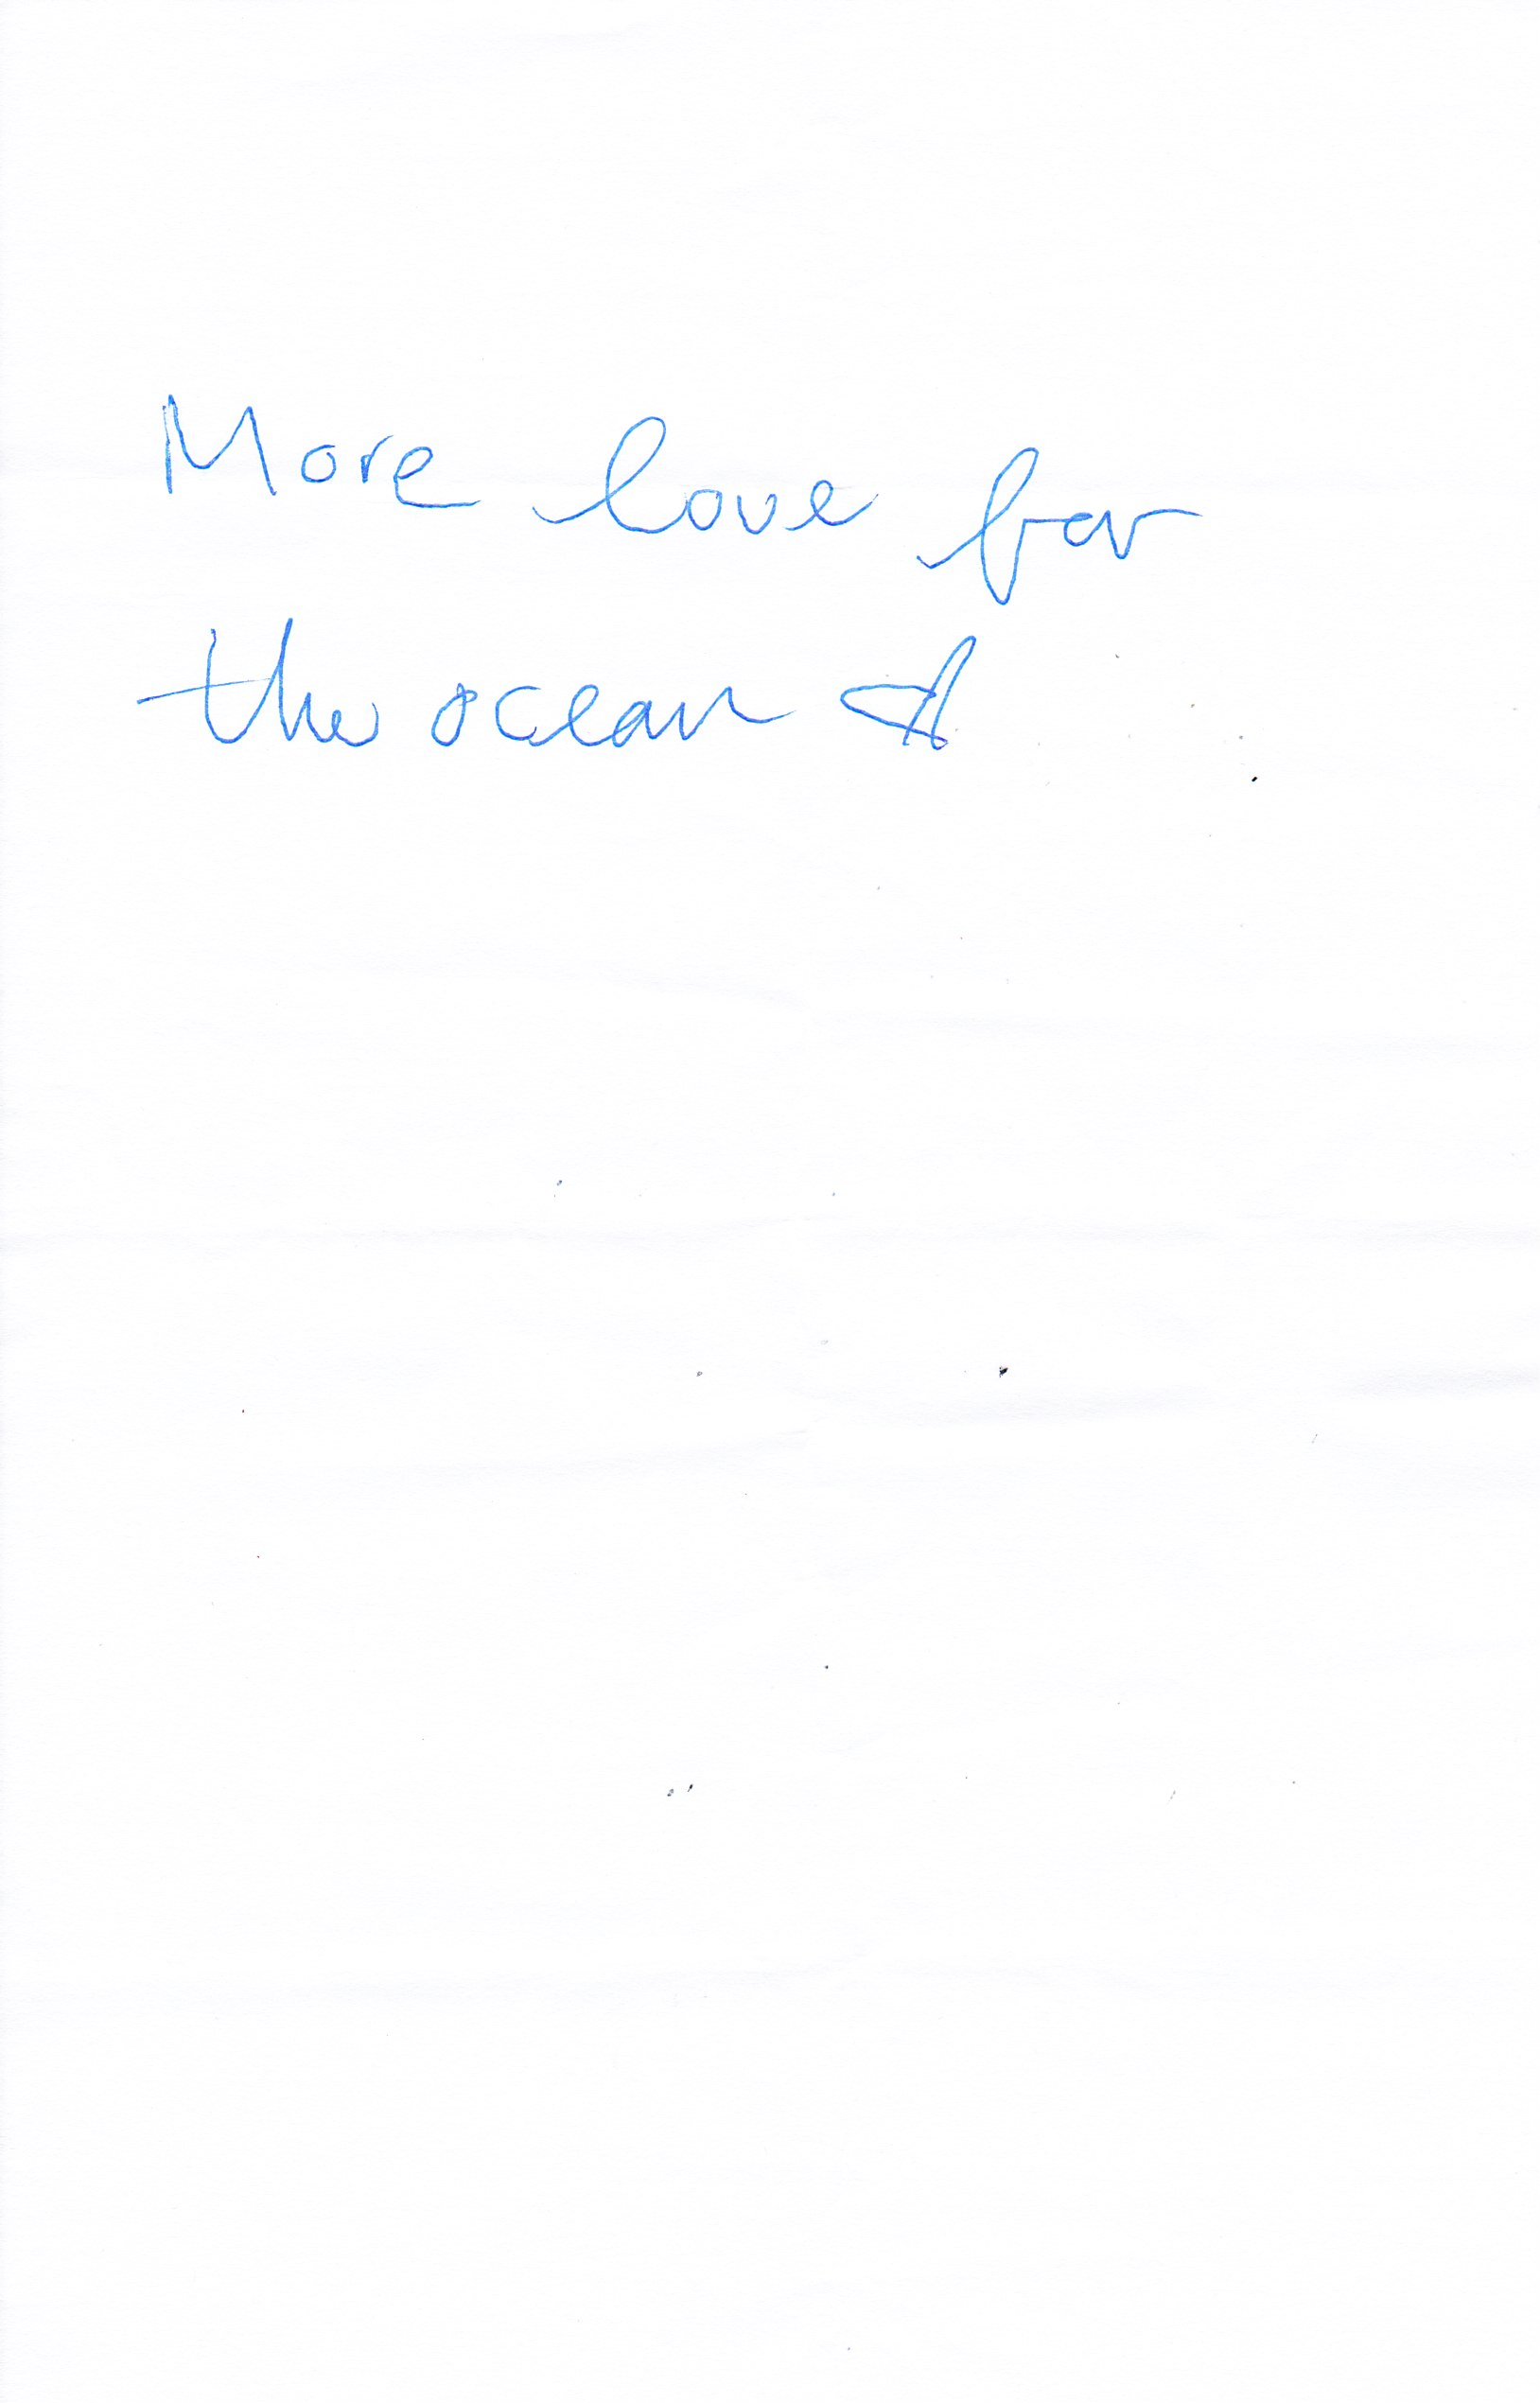 More love for
the ocean